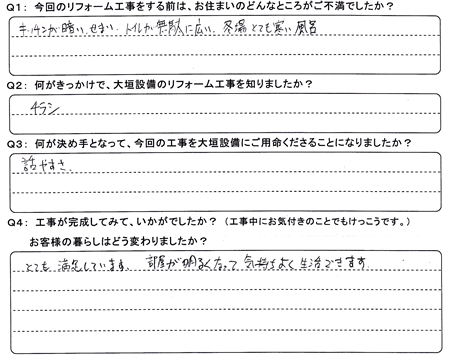 Q1： 今回のリフォーム工事をする前は、お住まいのどんなところがご不満でしたか？
キッチンが暗い、せまい、トイレが無駄に広い、冬場とても寒い風呂
Q2： 何がきっかけで、大垣設備のリフォーム工事を知りましたか？
チラシ
Q3： 何が決め手となって、今回の工事を大垣設備にご用命くださることになりましたか？
話やすさ、
Q4： 工事が完成してみて、いかがでしたか？（工事中にお気付きのことでもけっこうです。）
お客様の暮らしはどう変わりましたか？
とても満足しています。 部屋が明るくなって気持ちよく生活できます